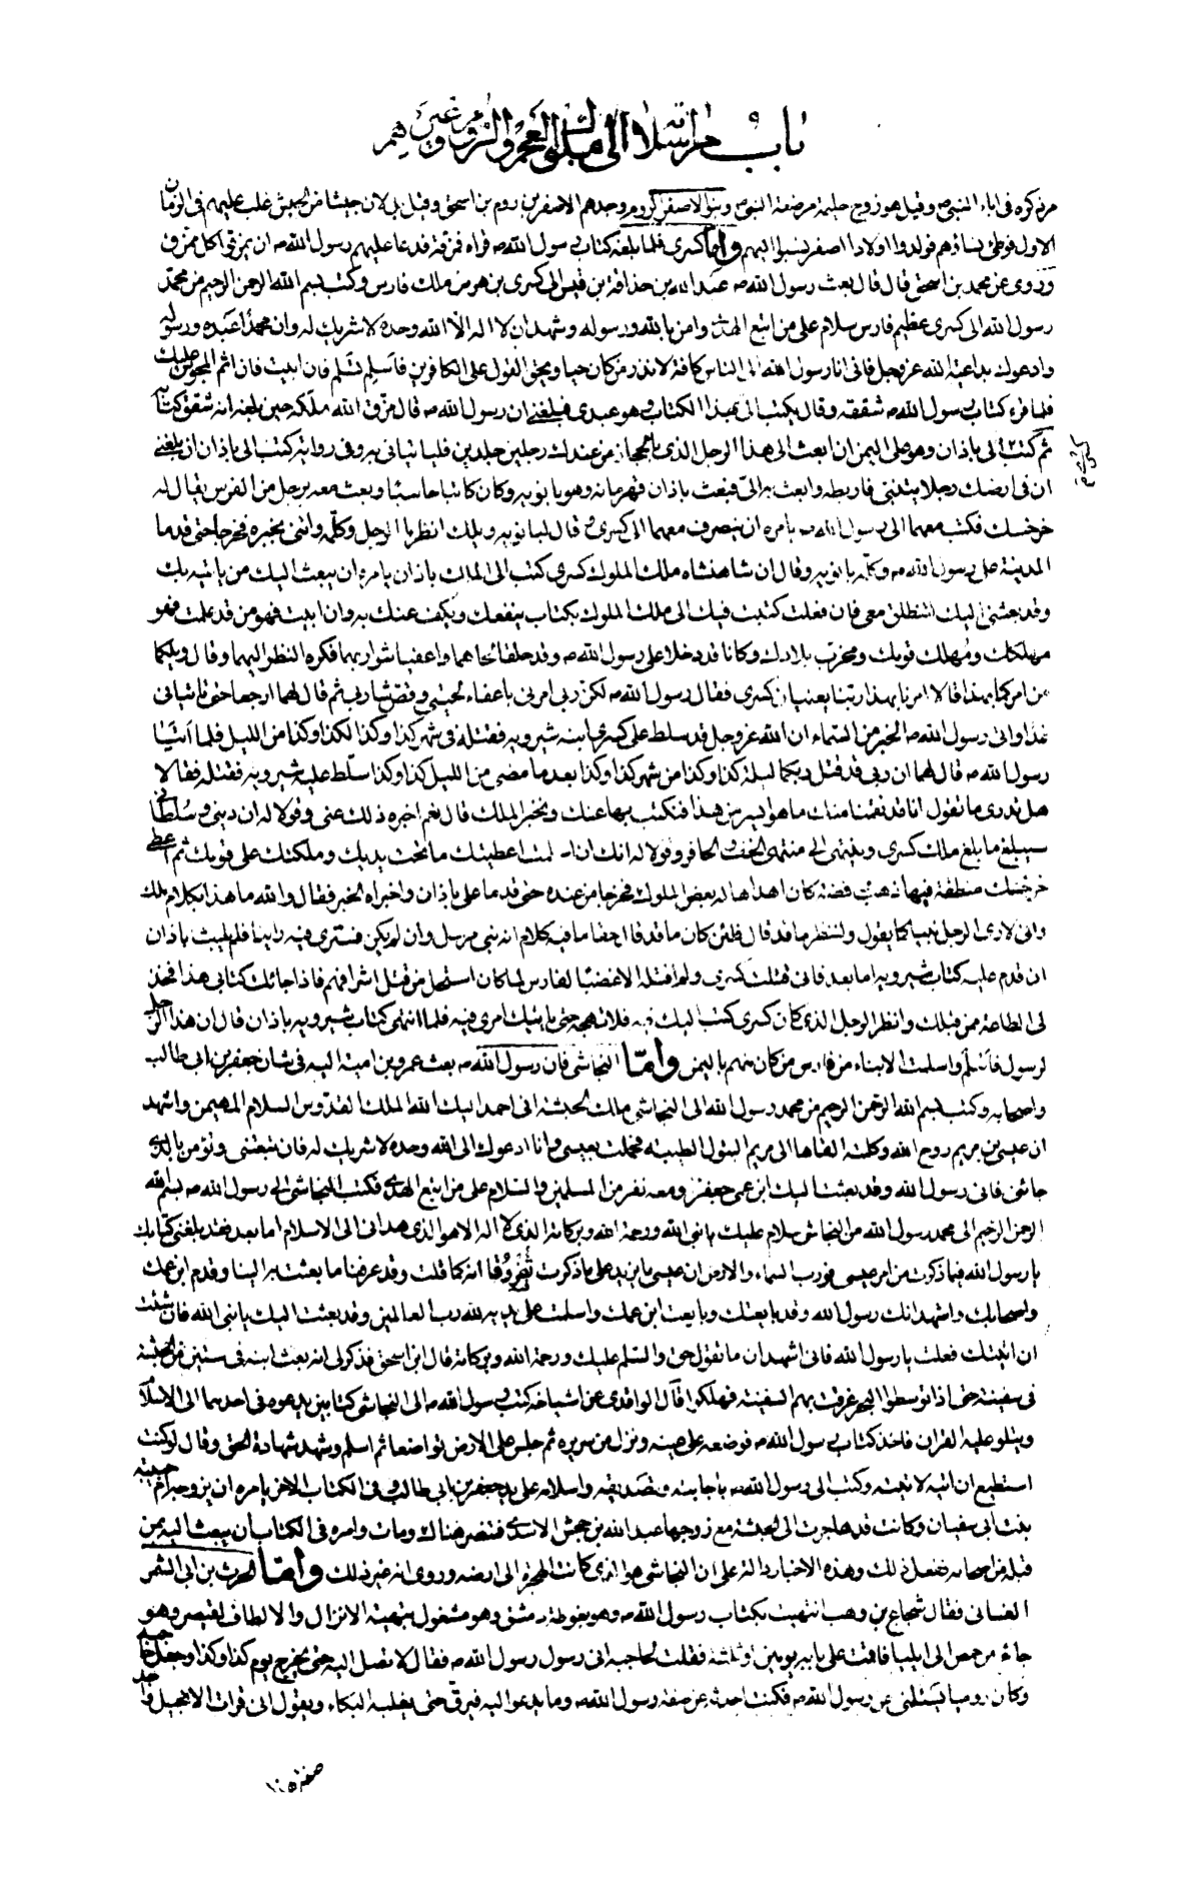 باب مراسلاته الى ملوك العجم والروم وغيرهم
مر ذكره فى اباء النبى ص وقيل هو زوج حليمة مرضعة النبى ص وبنو الاصفر كروم وحدهم الاصفر بن روم بن اسحق وقيل بل لان جيشا من الحبش غلب عليهم فى الزمان
الاول فوطئ نساؤهم فولدوا اولادا اصفر ينسبوا اليهم واما كسرى فلما بلغه كتاب رسول الله ص فراه فمزقه فدعا عليهم رسول الله ص ان يمزقوا كل ممزق
وروى عن محمد بن اسحق قال قال بعث رسول الله ص عبد الله بن حذافة بن قيس الى كسرى بن هرمز ملك فارس وكتب بسم الله الرحمن الرحيم من محمد
رسول الله الى كسرى عظيم فارس سلام على من اتبع الهدى وامن بالله ورسوله وشهد ان لا اله الا الله وحده لا شريك له وان محمدا عبده ورسوله
وادعوك بداعية الله عز وجل فانى انا رسول الله الى الناس كافة لانذر من كان حيا ويحق القول على الكافرين فاسلم تسلم فان ابيت فان اثم المجوس عليك
فلما قرء كتاب رسول الله ص شققه وقال يكتب الى بهذا الكتاب وهو عبدى فبلغنى ان رسول الله ص قال مزق الله ملكه حين بلغه انه شقق كتابه
ثم كتب كسرى الى باذان وهو على اليمن ان ابعث الى هذا الرجل الذى بالحجاز من عندك رجلين جلدين فلياتيانى به وفى رواية كتب الى باذان ان بلغنى
ان فى ارضك رجلا يتنبى فاربطه وابعث به الى فبعث باذان قهرمانه وهو بانويه وكان كاتبا حاسبا وبعث معه برجل من الفرس يقال له
خرخسك فكتب معهما الى رسول الله ص يامره ان ينصرف معهما الى كسرى و قال لبانويه ويلك انظر ما الرجل وكلمه واتنى بخبره فخرجا حتى قدما
المدينة على رسول الله ص وكلمه بانويه وقال ان شاهنشاه ملك الملوك كسرى كتب الى الملك باذان يامره ان يبعث اليك من ياتيه بك
وقد بعثنى اليك لتنطلق معى فان فعلت كتبت فيك الى ملك الملوك بكتاب ينفعك ويكف عنك به وان ابيت فهو من قد علمت فهو
مهلكك ومهلك قومك ومخرب بلادك وكانا قد دخلا على رسول الله ص وقد حلقا لحاهما واعفيا شواربهما فكره النظر اليهما وقال ويلكما
من امركما بهذا قالا امرنا بهذا ربنا يعنيان كسرى فقال رسول الله ص لكن ربى امرنى باعفاء لحيتى وقص شاربى ثم قال لهما ارجعا حتى تاتيانى
غدا واتى رسول الله ص الخبر من السماء ان الله عز وجل قد سلط على كسرى ابنه شيرويه فقتله فى شهر كذا وكذا لكذا وكذا من الليل فلما اتيا
رسول الله ص قال لهما ان ربى قد قتل ربكما ليلة كذا وكذا من شهر كذا وكذا بعد ما مضى من الليل كذا وكذا سلط عليه شيرويه فقتله فقالا
هل تدرى ما تقول انا قد نقمنا منك ما هو ايسر من هذا فنكتب بها عنك ونخبر الملك قال نعم اخبره ذلك عنى وقولا له ان دينى وسلطانى
سيبلغ ما بلغ ملك كسرى وينتهى الى منتهى الخف والحافر وقولا له انك ان اسلمت اعطيتك ما تحت يديك وملكتك على قومك ثم اعطى
خرخسك منطقة فيها ذهب وفضة كان اهداها له بعض الملوك فخرجا من عنده حتى قدما على باذان واخبراه الخبر فقال والله ما هذا بكلام ملك
وانى لارى الرجل نبيا كما يقول ولننظر ما قد قال فلئن كان ما قد قال حقا ما فيه كلام انه نبى مرسل وان لم يكن فسنرى فيه راينا فلم يلبث باذان
ان قدم عليه كتاب شيرويه اما بعد فانى قتلت كسرى ولم اقتله الا غضبا لفارس لما كان استحل من قتل اشرافهم فاذا جائك كتابى هذا فخذ
لى الطاعة ممن قبلك وانظر الرجل الذى كان كسرى كتب اليك فيه فلا تهجه حتى ياتيك امرى فيه فلما انتهى كتاب شيرويه باذان قال ان هذا الرجل
لرسول فاسلم واسلمت الابناء من فارس من كان منهم باليمن واما النجاشى فان رسول الله ص بعث عمرو بن امية اليه فى شان جعفر بن ابى طالب
واصحابه وكتب بسم الله الرحمن الرحيم من محمد رسول الله الى النجاشى ملك الحبشة انى احمد اليك الله الملك القدوس السلام المهيمن واشهد
ان عيسى بن مريم روح الله وكلمته القاها الى مريم البتول الطيبة فحملت بعيسى وانا ادعوك الى الله وحده لا شريك له فان تتبعنى وتؤمن بالذى
جائنى فانى رسول الله وقد بعثت اليك ابن عمى جعفر ومعه نفر من المسلمين والسلام على من اتبع الهدى فكتب النجاشى الى رسول الله ص بسم الله
الرحمن الرحيم الى محمد رسول الله من النجاشى سلام عليك يا نبى الله ورحمة الله وبركاته الذى لا اله الا هو الذى هدانى الى الاسلام اما بعد فقد بلغنى كتابك
يا رسول الله فيما ذكرت من امر عيسى فورب السماء والارض ان عيسى ما يزيد على ما ذكرت ثفروقا انه كما قلت وقد عرفنا ما بعثت به الينا وقدم ابن عمك
واصحابك واشهد انك رسول الله وقد بايعتك وبايعت ابن عمك واسلمت على يديه لله رب العالمين وقد بعثت اليك يا نبى الله فان شئت
ان اتيتك فعلت يا رسول الله فانى اشهد ان ما تقول حق والسلم عليك ورحمة الله وبركاته قال ابن اسحق فذكر لى انه بعث ابنه فى ستين من الحبشة
فى سفينة حتى اذا توسطوا البحر غرقت بهم السفينة فهلكوا قال الواقدى عن اشياخه كتب رسول الله ص الى النجاشى كتابين يدعوه فى احدهما الى الاسلام
ويتلو عليه القران فاخذ كتاب رسول الله ص فوضعه على عينيه ونزل من سريره ثم جلس على الارض تواضعا ثم اسلم وشهد شهادة الحق وقال لو كنت
استطيع ان اتيه لاتيته وكتب الى رسول الله ص باجابته وتصديقه واسلامه على يد جعفر بن ابى طالب وفى الكتاب الاخر يامره ان يزوجه ام حبيبة
بنت ابى سفيان وكانت قد هاجرت الى الحبشة مع زوجها عبد الله بن جحش الاسدى فتنصر هناك ومات وامره فى الكتاب ان يبعث اليه بمن
قبله من اصحابه ففعل ذلك وهذه الاخبار دالة على ان النجاشى هو الذى كانت الهجرة الى ارضه وروى انه غير ذلك واما الحرث بن ابى الشمر
الغسانى فقال شجاع بن وهب انتهيت بكتاب رسول الله ص وهو بغوطة دمشق وهو مشغول بتهيئة الانزال والالطاف لقيصر وهو
جاء من حمص الى ايليا فاقمت على بابه يومين او ثلثة فقلت لحاجبه انى رسول رسول الله ص فقال لا تصل اليه حتى يخرج يوم كذا وكذا وجعل حاجبه
وكان روميا يسئلنى عن رسول الله ص فكنت احدثه عن صفة رسول الله ص وما يدعو اليه فيرق حتى يغلبه البكاء ويقول انى قرات الانجيل فاجد
صفحه ١٠٥